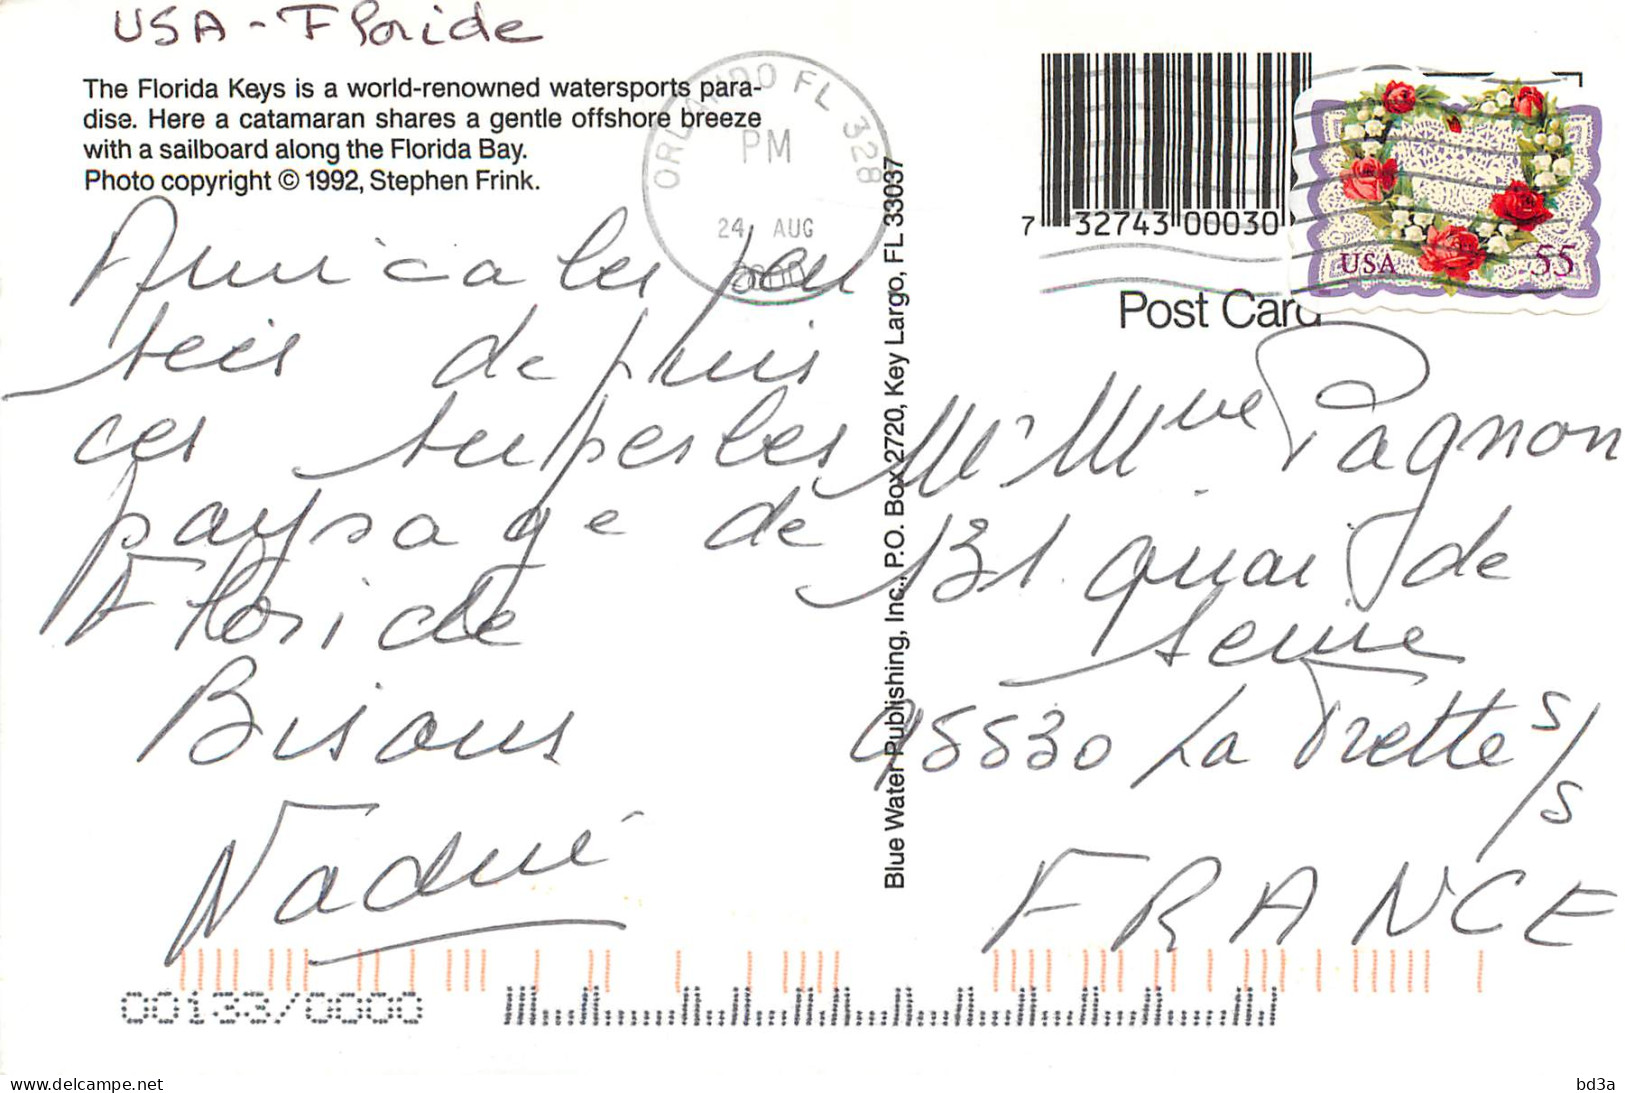 USA - Floride
The Florida Keys is a world-renowned watersports para-
dise. Here a catamaran shares a gentle offshore breeze
with a sailboard along the Florida Bay.
Photo copyright © 1992, Stephen Frink.
ORLANDO FL 328
PM
24 AUG
7 32743 00030
USA 55
Post Card
Amicales pen
sées depuis
ces superbes
paysage de
Floride
Bisous
Nadine
Blue Water Publishing, Inc., P.O. Box 2720, Key Largo, FL 33037
Mr Mme Pagnon
131 quai de
Seine
95530 La Frette s/s
FRANCE
delcampe.net
bd3a